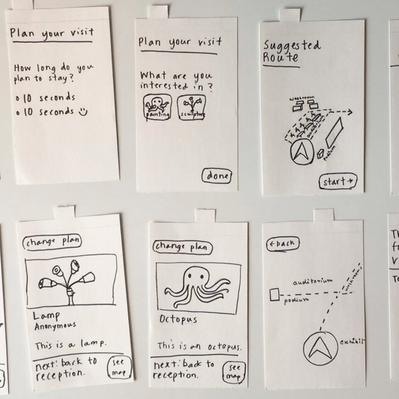 Plan your visit
How long do you
plan to stay?
10 seconds
10 seconds
Plan your visit
What are you
interested in?
painting
sculpture
done
Suggested
Route
start
change plan
Lamp
Anonymous
This is a lamp.
next: back to
reception.
see
map
change plan
Octopus
This is an octopus.
next: back to
reception.
see
map
back
auditorium
podium
exhibit